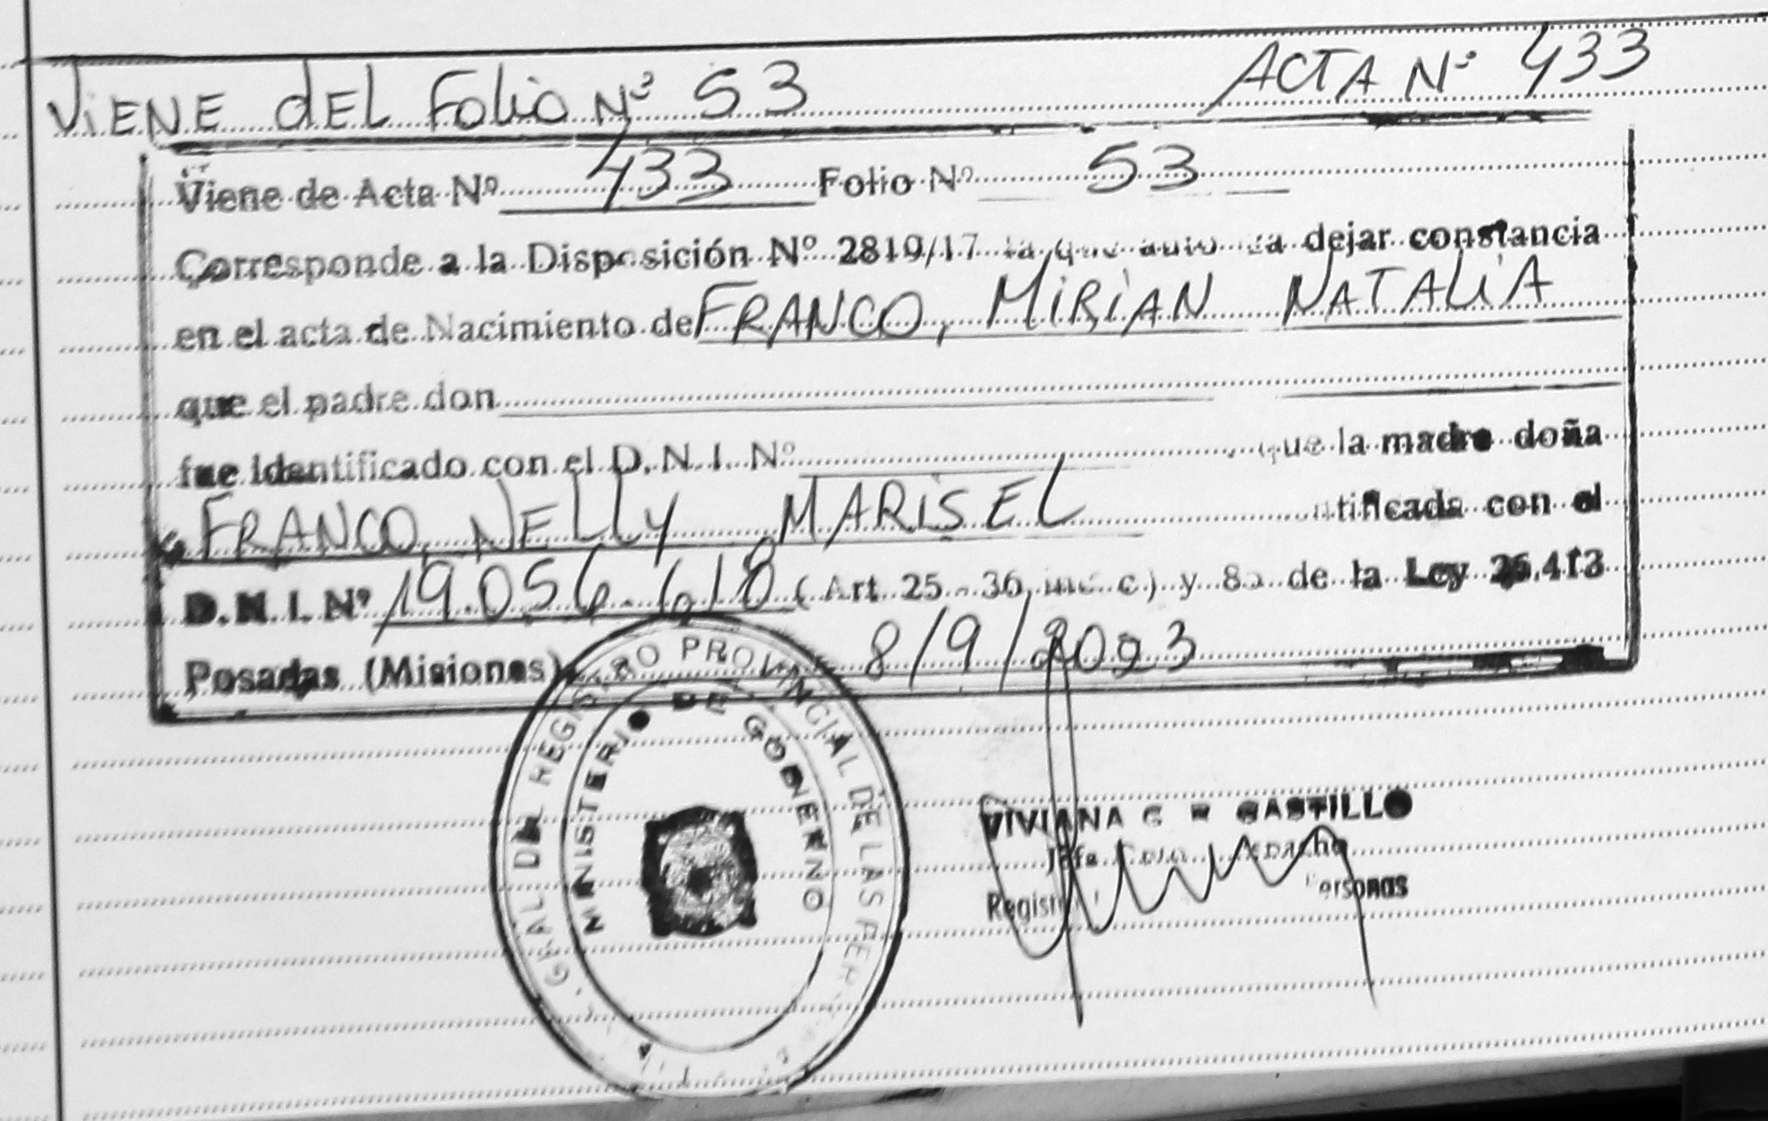 ViENE dEL Folio Nº 53 ACTA Nº 433
Viene de Acta Nº 433 Folio Nº 53
Corresponde a la Disposición Nº 2819/17 la que dejar constancia
en el acta de Nacimiento de FRANCO, MiRiAN NATALiA
que el padre don
fue identificado con el D.N.I. Nº que la madre doña
FRANCO, NELLY MARiSEL con el
D.N.I. Nº 19.056.618 (Art. 25 - 36, inc. c) y 85 de la Ley 26.413
Posadas (Misiones) 8/9/2023
REGISTRO PROVINCIAL DE LAS
MINISTERIO DE GOBIERNO
VIVIANA G CASTILLO
Jefa
Personas